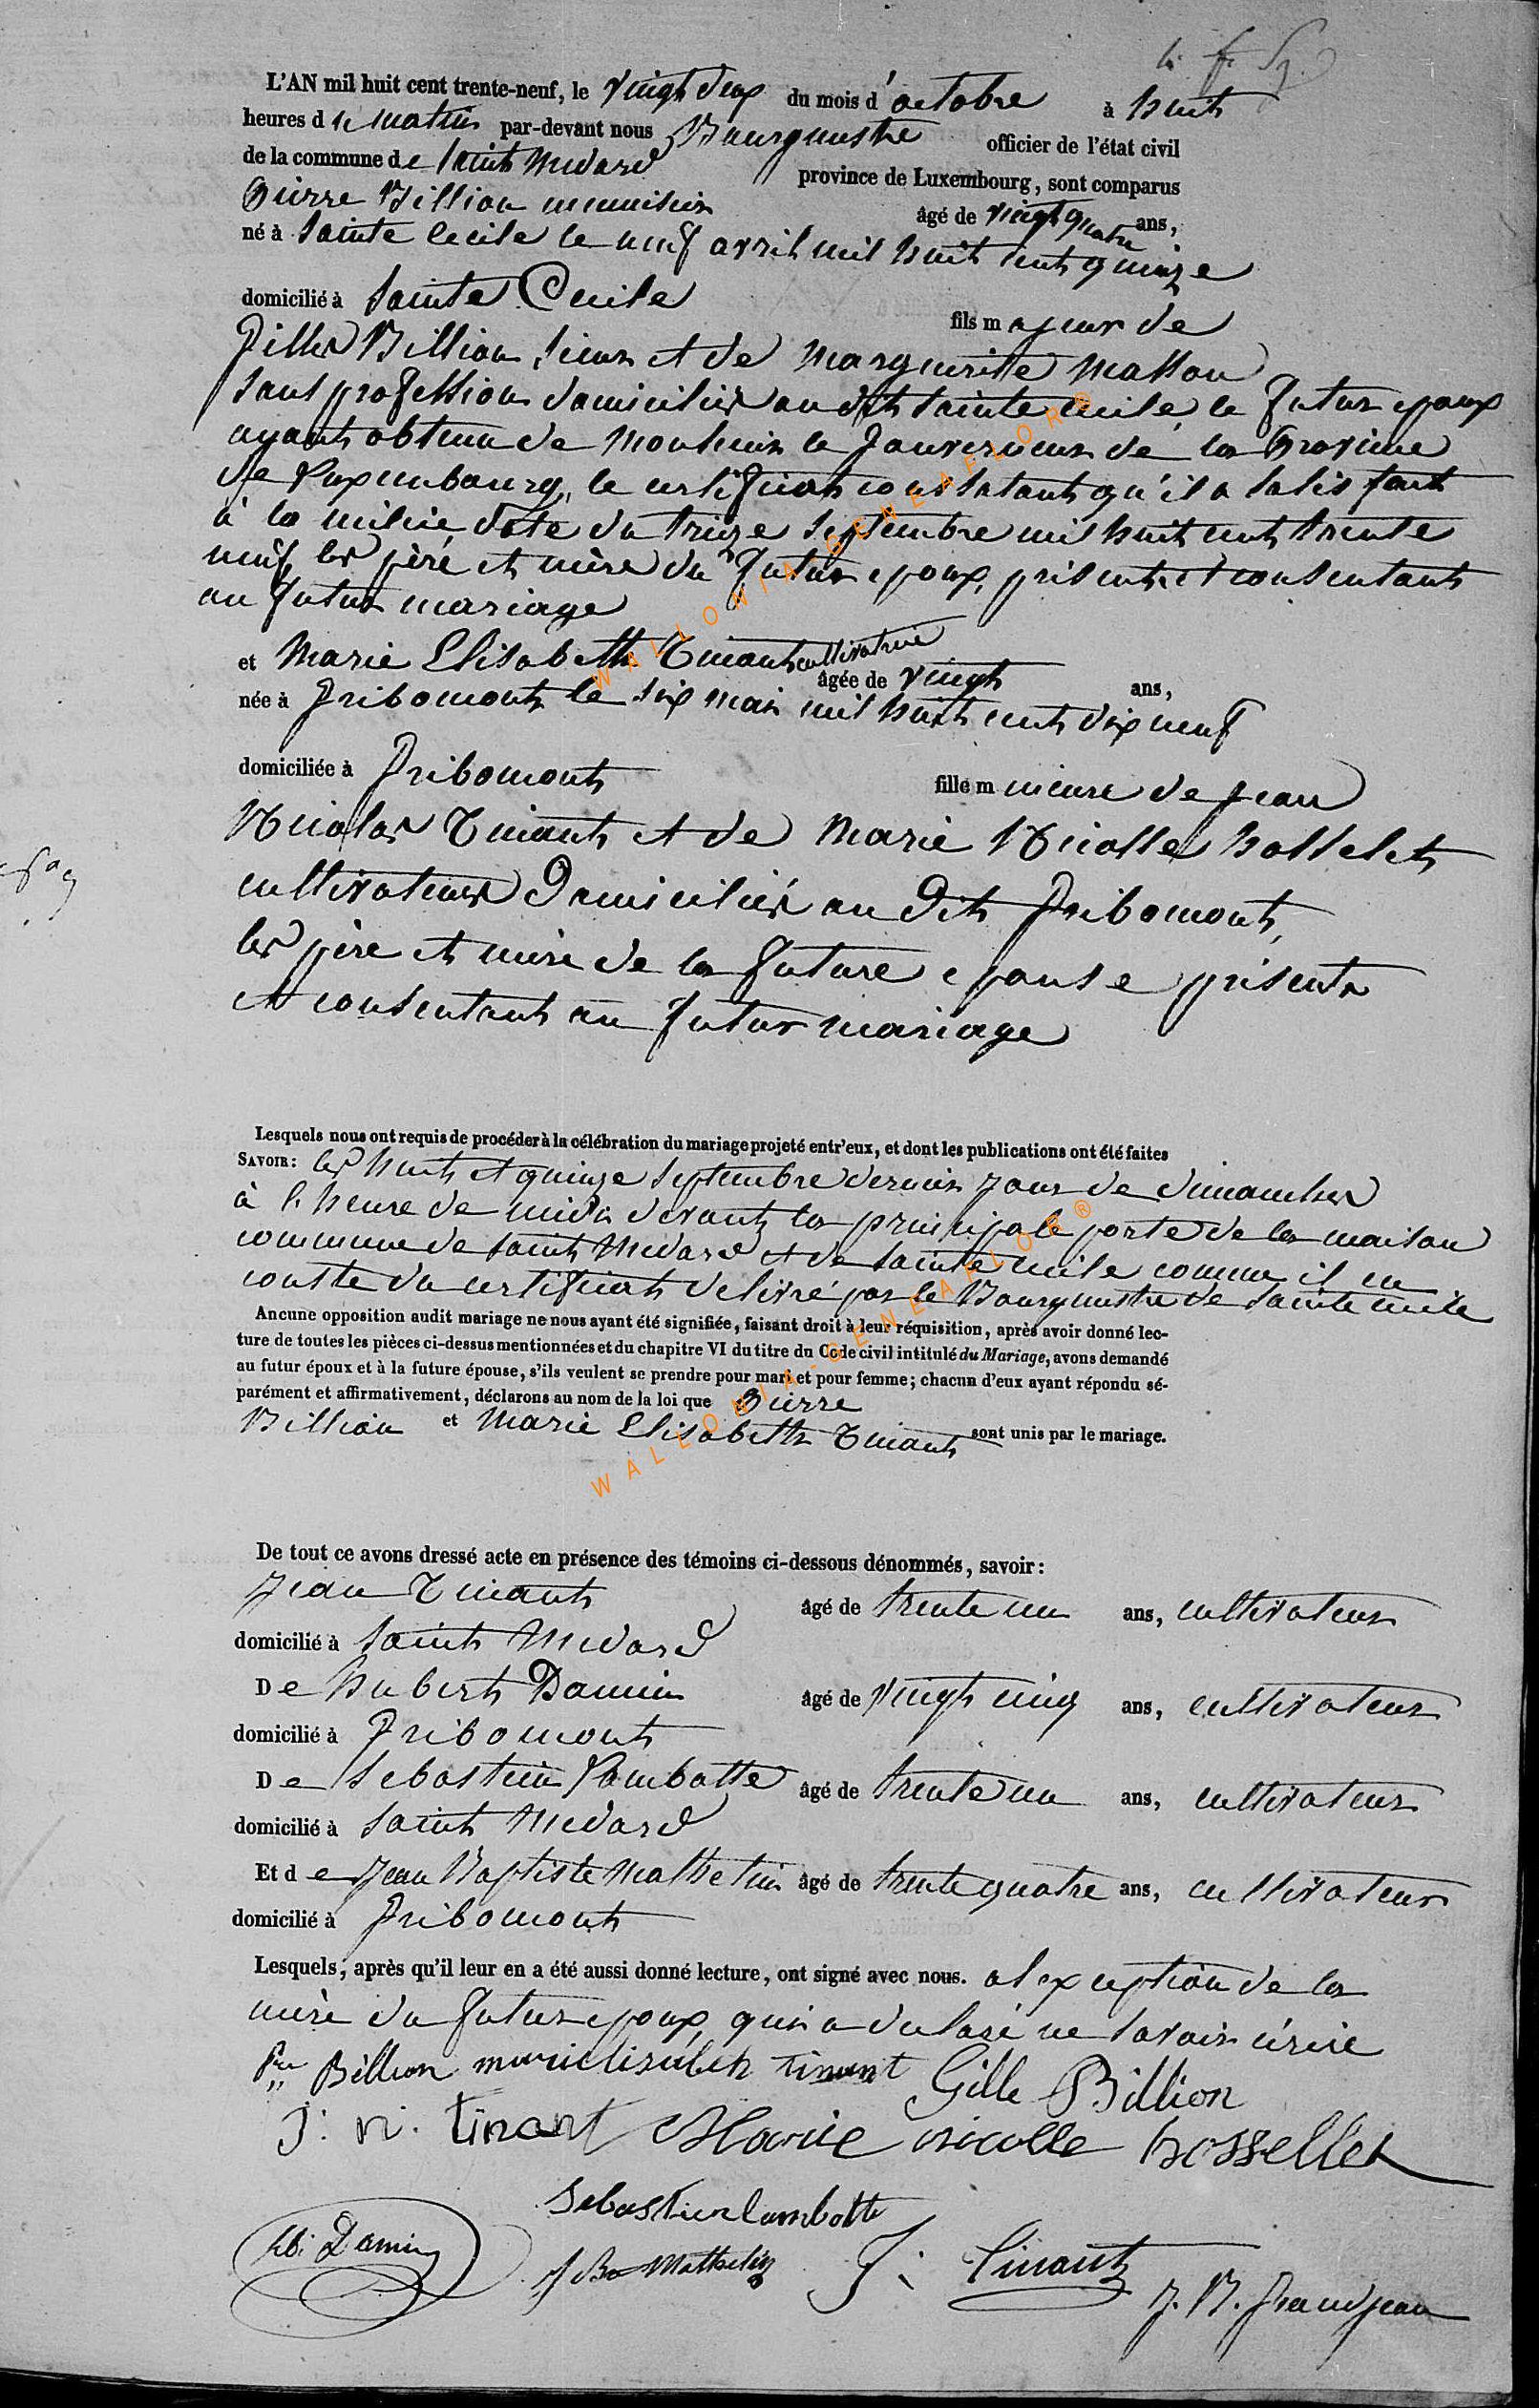 L'AN mil huit cent trente-neuf, le vingt deux du mois d'octobre à huit
heures du matin par-devant nous Bourgmestre officier de l'état civil
de la commune de Saint Medard province de Luxembourg, sont comparus
Pierre Billion menuisier âgé de vingt quatre ans,
né à Sainte Cecile le neuf avril mil huit cent quinze
domicilié à Sainte Cecile fils majeur de
Gilles Billion, sieur et de Marguerite Masson
sans profession domiciliés au dit Sainte Cecile, le futur epoux
ayant obtenu de Monsieur le Gouverneur de la Province
de Luxembourg, le certificat constatant qu'il a satisfait
à la milice, daté du treize Septembre mil huit cent trente
neuf, les père et mère du futur epoux, présents et consentants
au futur mariage
et Marie Elisabeth Tinant cultivatrice âgée de vingt ans,
née à Gribomont le six mai mil huit cent dix neuf
domiciliée à Gribomont fille mineure de Jean
Nicolas Tinant et de Marie Nicolle hosselet
cultivateurs domiciliés au dit Gribomont,
les père et mère de la future epouse présents
et consentant au futur mariage
Lesquels nous ont requis de procéder à la célébration du mariage projeté entr'eux, et dont les publications ont été faites
SAVOIR: les huit et quinze Septembre dernier jour de dimanches
à l'heure de midi devant la principale porte de la maison
commune de Saint Medard et de Sainte Cecile comme il en
conste du certificat delivré par le Bourgmestre de Sainte Cecile
Aucune opposition audit mariage ne nous ayant été signifiée, faisant droit à leur réquisition, après avoir donné lec-
ture de toutes les pièces ci-dessus mentionnées et du chapitre VI du titre du Code civil intitulé du Mariage, avons demandé
au futur époux et à la future épouse, s'ils veulent se prendre pour mari et pour femme; chacun d'eux ayant répondu sé-
parément et affirmativement, déclarons au nom de la loi que Pierre
Billion et Marie Elisabeth Tinant sont unis par le mariage.
De tout ce avons dressé acte en présence des témoins ci-dessous dénommés, savoir:
Jean Tinant âgé de trente un ans, cultivateur
domicilié à Saint Medard
De Hubert Damien âgé de vingt cinq ans, cultivateur
domicilié à Gribomont
De Sebastien Lambotte âgé de trente un ans, cultivateur
domicilié à Saint Medard
Et de Jean Baptiste Mathelin âgé de trente quatre ans, cultivateur
domicilié à Gribomont
Lesquels, après qu'il leur en a été aussi donné lecture, ont signé avec nous. a l'exception de la
mère du futur epoux, qui a declaré ne savoir écrire
Pre Billion marielisabeh tinant Gille Billion
J: n: tinant Marie nicolle hossellet
Sebastien lambotte
hb: Damin J Bte Mathelin J: Tinant
J. B. Grandjean
WALLONIA-GENEAFLOR®
WALLONIA-GENEAFLOR®